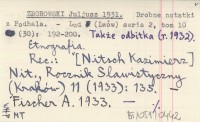 ZBOROWSKI Juljusz 1931. Drobne notatki
z Podhala. - Lud (Lwów) seria 2, tom 10
(30): 192-200. Także odbitka (r. 1932).
Etnografia.
Rec.: "[Nitsch Kazimierz]
Nit., Rocznik Slawistyczny
(Kraków) 11 (1933): 135.
Fischer A. 1933. —
MT